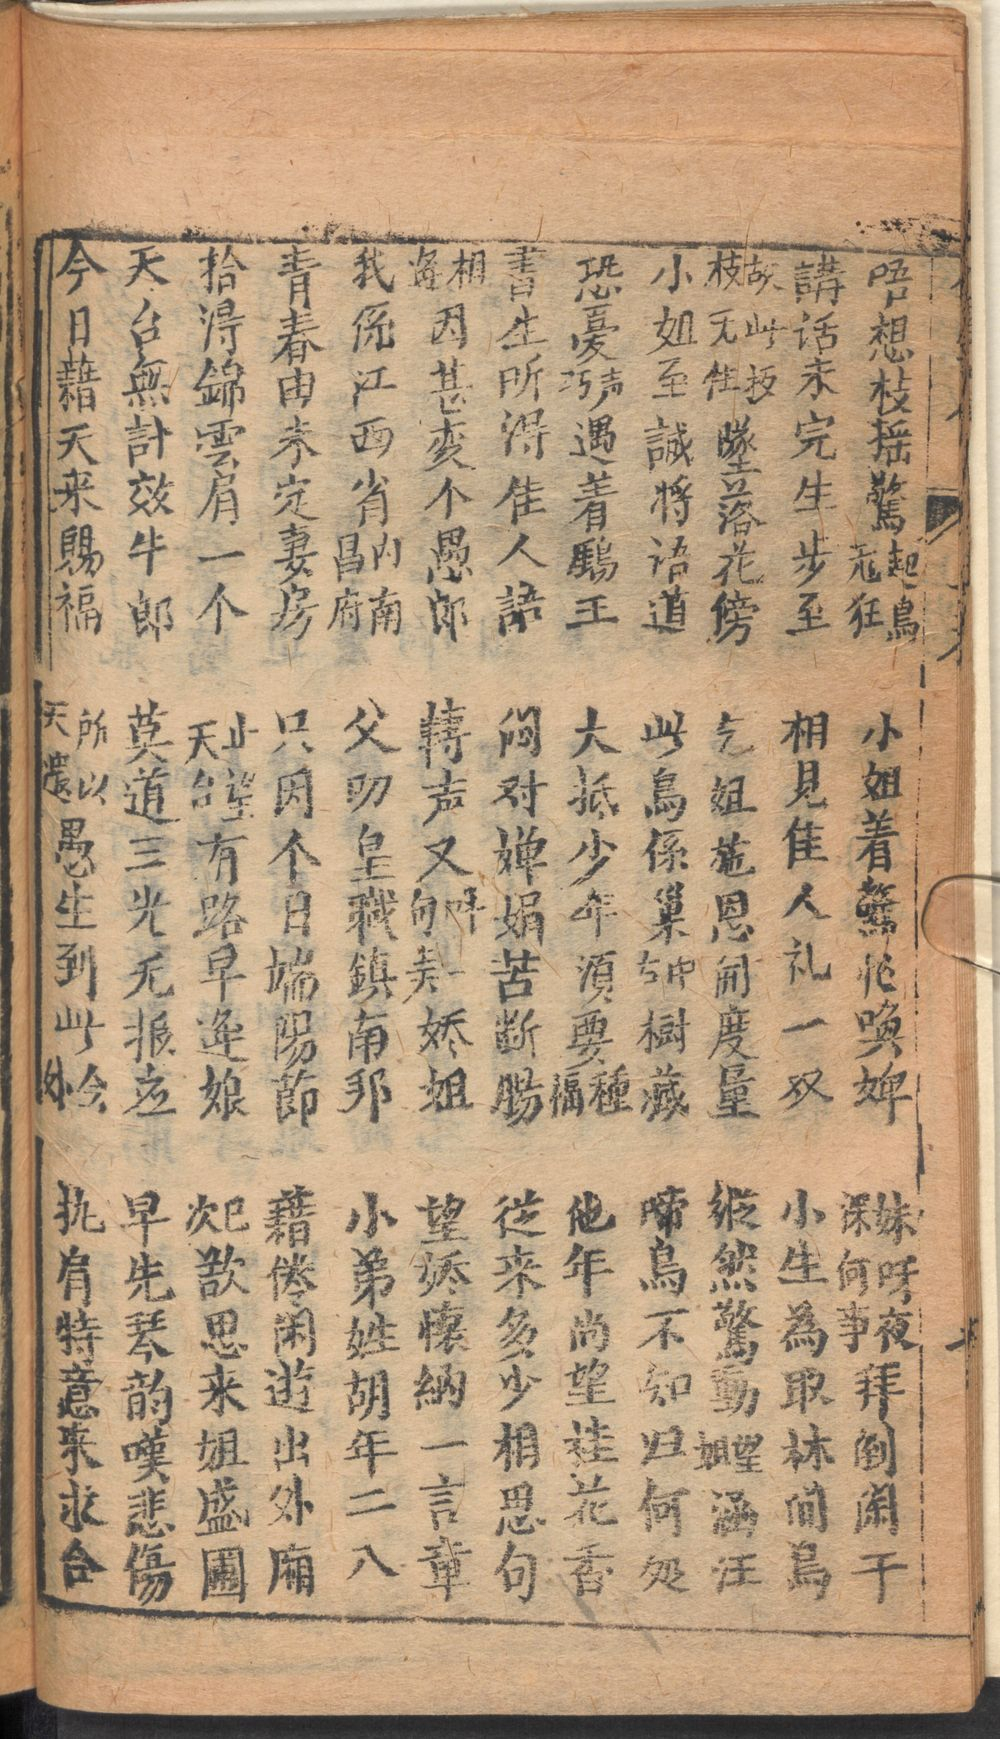 唔想枝摇驚起鳥冦狂　小姐着驚忙喚婢　妹呀夜深何事拜倒闌干
講话未完生步至　相見佳人礼一双　小生為取林间鳥
故此扳枝无隹墜落花傍　乞姐施恩開度量　縦然驚動望姐涵汪
小姐至誠将语道　此鳥係巢树藏　啼鳥不知归何处
恐憂声遇着鷗王　大抵少年須要種福　他年尚望桂花香
書生所淂佳人語　闷对婵娟苦断腸　從来多少相思句
相逢因甚变个愚郎　轉声又呌句嬌姐　望嬌懷納一言章
我係江西省内南昌府　父叨皇職鎮南邦　小弟姓胡年二八
青春由未定妻房　只因个日端陽節　藉倦闲遊出外廂
拾淂錦雲肩一个　止望天台有路早逢娘　次已歡思来姐盛圃
天台無計效牛郎　莫道三光无报应　早先琴韵嘆悲傷
今日藉天来賜福　所以天還愚生到此今　执肩特意来求合